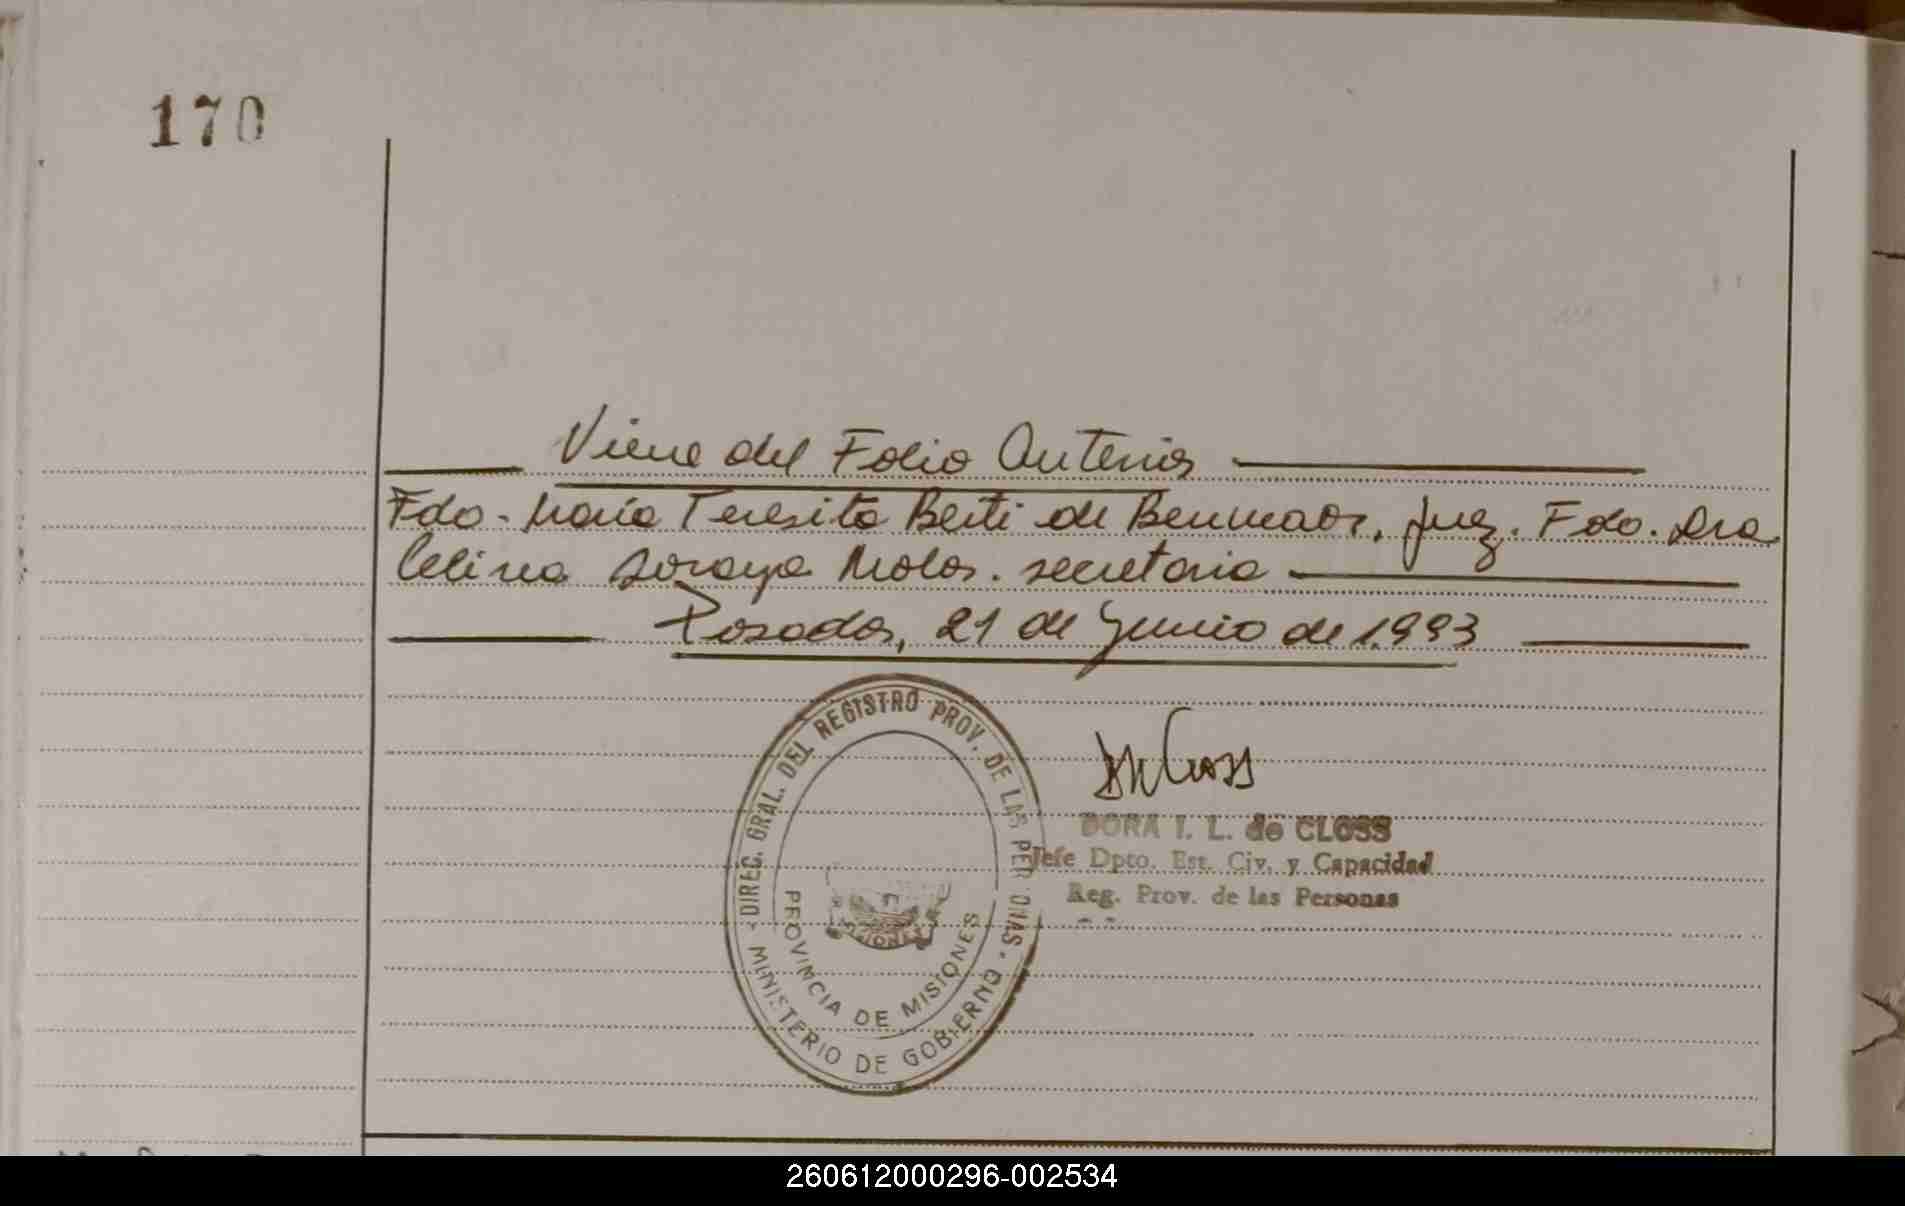 170
Viene del Folio Anterior
Fdo. María Teresita Berti de Benmaor, Juez. Fdo. Dra
Celina Soraya Molas. secretaria
Posadas, 21 de Junio de 1,993
DIREC. GRAL. DEL REGISTRO PROV. DE LAS PER ONAS.
MINISTERIO DE GOBIERNO
PROVINCIA DE MISIONES
MISIONES
DORA I. L. de CLOSS
Jefe Dpto. Est. Civ. y Capacidad
Reg. Prov. de las Personas
260612000296-002534